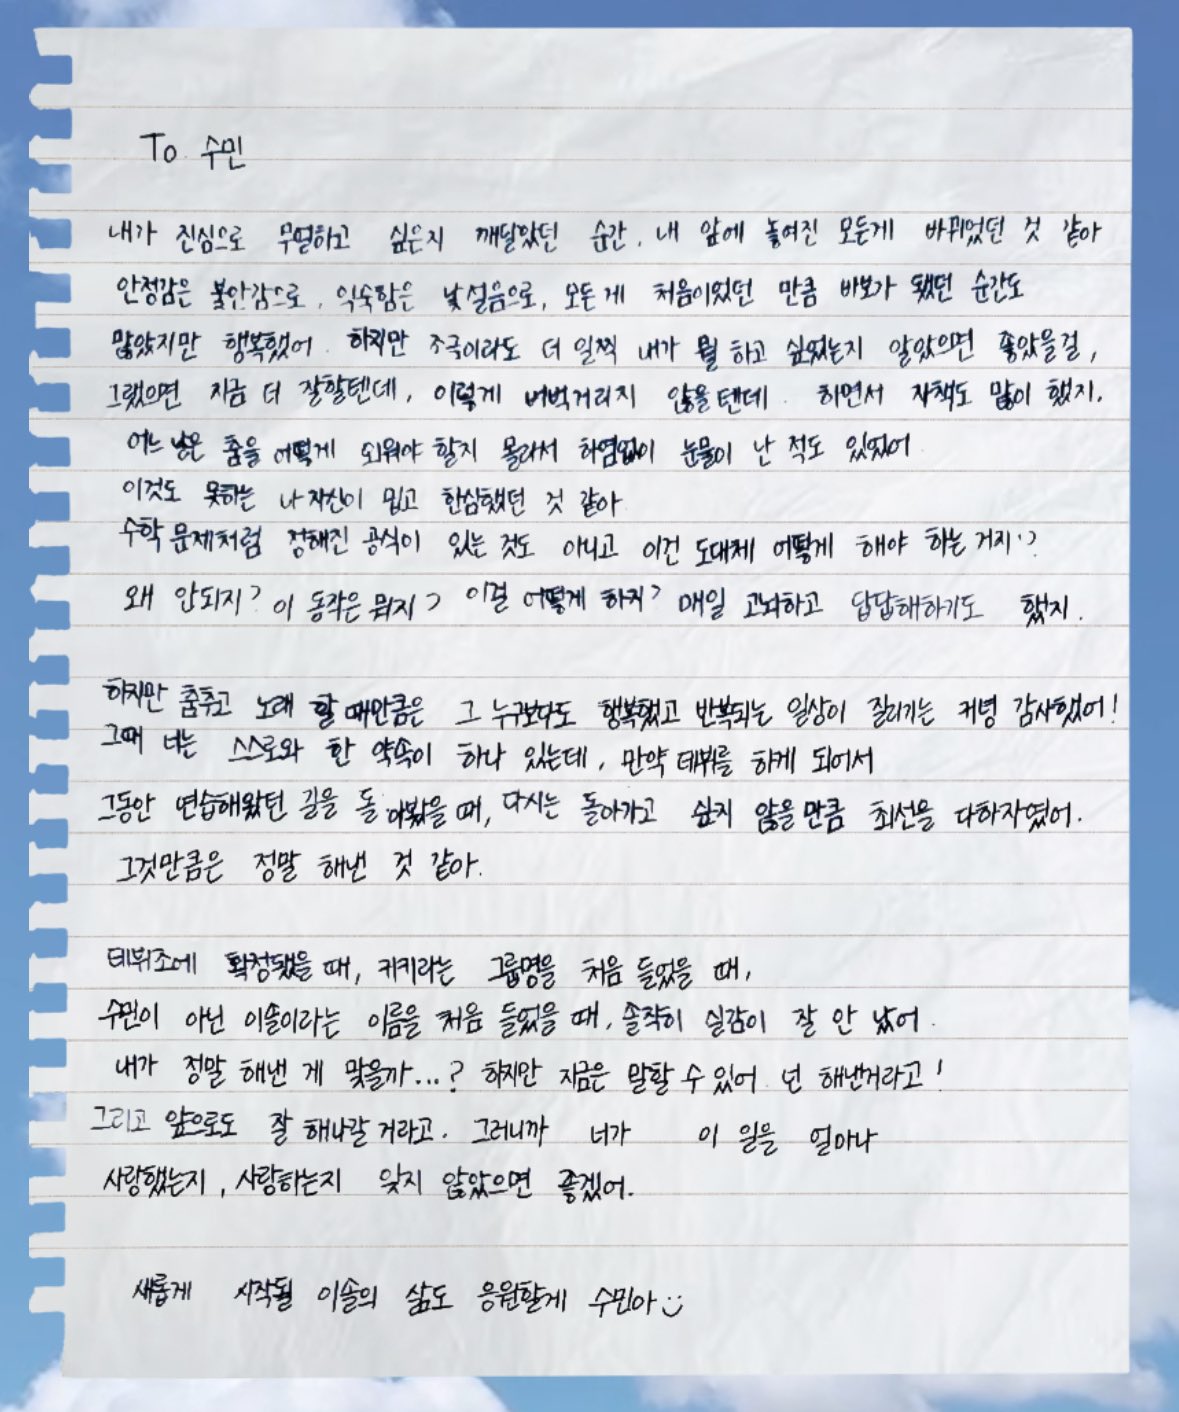 To 수민
내가 진심으로 무얼하고 싶은지 깨달았던 순간, 내 앞에 놓여진 모든게 바뀌었던 것 같아
안정감은 불안감으로, 익숙함은 낯설음으로, 모든게 처음이었던 만큼 바보가 됐던 순간도
많았지만 행복했어. 하지만 조금이라도 더 일찍 내가 뭘 하고 싶었는지 알았으면 좋았을걸,
그랬으면 지금 더 잘할텐데, 이렇게 버벅거리지 않을텐데. 하면서 자책도 많이 했지.
어느 날은 춤을 어떻게 외워야 할지 몰라서 하염없이 눈물이 난 적도 있었어
이것도 못하는 나 자신이 밉고 한심했던 것 같아
수학 문제처럼 정해진 공식이 있는 것도 아니고 이건 도대체 어떻게 해야 하는 거지..?
왜 안되지? 이 동작은 뭐지? 이걸 어떻게 하지? 매일 고뇌하고 답답해하기도 했지.
하지만 춤추고 노래 할 때만큼은 그 누구보다도 행복했고 반복되는 일상이 질리기는 커녕 감사했어!
그때 너는 스스로와 한 약속이 하나 있는데, 만약 데뷔를 하게 되어서
그동안 연습해왔던 길을 돌아봤을 때, 다시는 돌아가고 싶지 않을 만큼 최선을 다하자였어.
그것만큼은 정말 해낸 것 같아.
데뷔조에 확정됐을 때, 키키라는 그룹명을 처음 들었을 때,
수민이 아닌 이솔이라는 이름을 처음 들었을 때, 솔직히 실감이 잘 안 났어.
내가 정말 해낸 게 맞을까...? 하지만 지금은 말할 수 있어 넌 해낸거라고!
그리고 앞으로도 잘 해나갈 거라고. 그러니까 너가 이 일을 얼마나
사랑했는지, 사랑하는지 잊지 않았으면 좋겠어.
새롭게 시작될 이솔의 삶도 응원할게 수민아